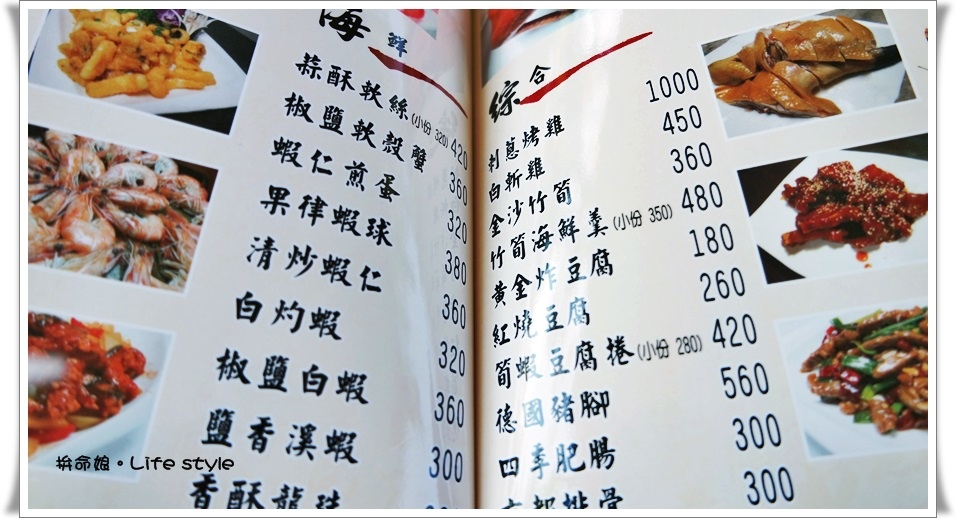 海鮮
蒜酥軟絲(小份 320) 420
椒鹽軟殼蟹 360
蝦仁煎蛋 320
果律蝦球 380
清炒蝦仁 360
白灼蝦 320
椒鹽白蝦 360
鹽香溪蝦 300
香酥龍珠
綜合
刺蔥烤雞 1000
白斬雞 450
金沙竹筍 360
竹筍海鮮羹(小份 350) 480
黃金炸豆腐 180
紅燒豆腐 260
筍蝦豆腐捲(小份 280) 420
德國豬腳 560
四季肥腸 300
京都排骨 300
拚命娘。Life style